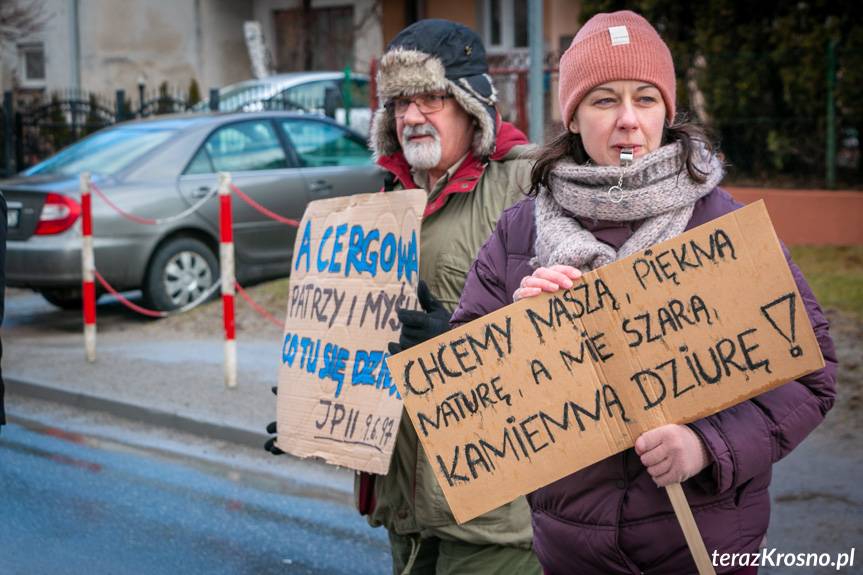 A CERGOWA
PATRZY I MYŚ
CO TU SIĘ DZIE
JPII 9.6.97
CHCEMY NASZĄ, PIĘKNĄ
NATURĘ, A NIE SZARĄ,
KAMIENNĄ DZIURĘ!
terazKrosno.pl